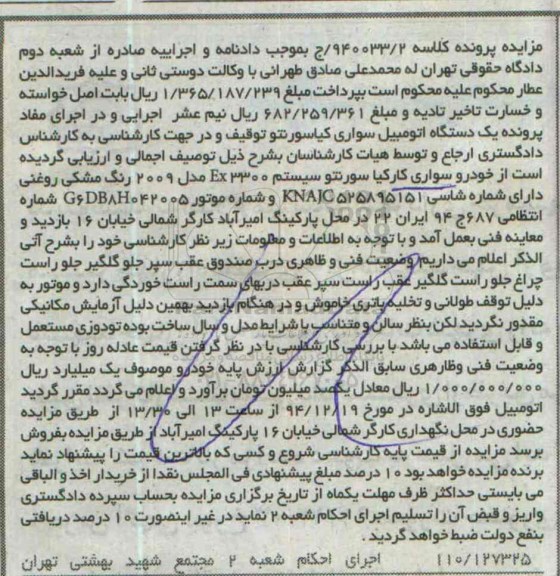 مزایده پرونده کلاسه ۹۴۰۰۳۳/۲/ج بموجب دادنامه و اجراییه صادره از شعبه دوم
دادگاه حقوقی تهران له محمدعلی صادق طهرانی با وکالت دوستی ثانی و علیه فریدالدین
عطار محکوم علیه محکوم است بپرداخت مبلغ ۱/۳۶۵/۱۸۷/۲۳۹ ریال بابت اصل خواسته
و خسارت تاخیر تادیه و مبلغ ۶۸۲/۲۵۹/۳۶۱ ریال نیم عشر اجرایی و در اجرای مفاد
پرونده یک دستگاه اتومبیل سواری کیاسورنتو توقیف و در جهت کارشناسی به کارشناس
دادگستری ارجاع و توسط هیات کارشناسان بشرح ذیل توصیف اجمالی و ارزیابی گردیده
است از خودرو سواری کارکیا سورنتو سیستم Ex ۳۳۰۰ مدل ۲۰۰۹ رنگ مشکی روغنی
دارای شماره شاسی KNAJC۵۲۵۸۹۵۱۵۱ و شماره موتور G۶DB۸H۰۴۲۰۰۵ شماره
انتظامی ۶۸۷ج ۹۴ ایران ۲۲ در محل پارکینگ امیرآباد کارگر شمالی خیابان ۱۶ بازدید و
معاینه فنی بعمل آمد و با توجه به اطلاعات و معلومات زیر نظر کارشناسی خود را بشرح آتی
الذکر اعلام می داریم وضعیت فنی و ظاهری درب صندوق عقب سپر جلو گلگیر جلو راست
چراغ جلو راست گلگیر عقب راست سپر عقب دربهای سمت راست خوردگی دارد و موتور به
دلیل توقف طولانی و تخلیه باتری خاموش و در هنگام بازدید بهمین دلیل آزمایش مکانیکی
مقدور نگردید لکن بنظر سالن و متناسب با شرایط مدل و سال ساخت بوده تودوزی مستعمل
و قابل استفاده می باشد با بررسی کارشناسی با در نظر گرفتن قیمت عادله روز با توجه به
وضعیت فنی وظاهری سابق الذکر گزارش ارزش پایه خودرو موصوف یک میلیارد ریال
۱/۰۰۰/۰۰۰/۰۰۰ ریال معادل یکصد میلیون تومان برآورد و اعلام می گردد مقرر گردید
اتومبیل فوق الاشاره در مورخ ۹۴/۱۲/۱۹ از ساعت ۱۳ الی ۱۳/۳۰ از طریق مزایده
حضوری در محل نگهداری کارگر شمالی خیابان ۱۶ پارکینگ امیرآباد از طریق مزایده بفروش
برسد مزایده از قیمت پایه کارشناسی شروع و کسی که بالاترین قیمت را پیشنهاد نماید
برنده مزایده خواهد بود ۱۰ درصد مبلغ پیشنهادی فی المجلس نقدا از خریدار اخذ و الباقی
می بایستی حداکثر ظرف مهلت یکماه از تاریخ برگزاری مزایده بحساب سپرده دادگستری
واریز و قبض آن را تسلیم اجرای احکام شعبه ۲ نماید در غیر اینصورت ۱۰ درصد دریافتی
بنفع دولت ضبط خواهد گردید.
۱۱۰/۱۲۷۳۲۵ اجرای احکام شعبه ۲ مجتمع شهید بهشتی تهران